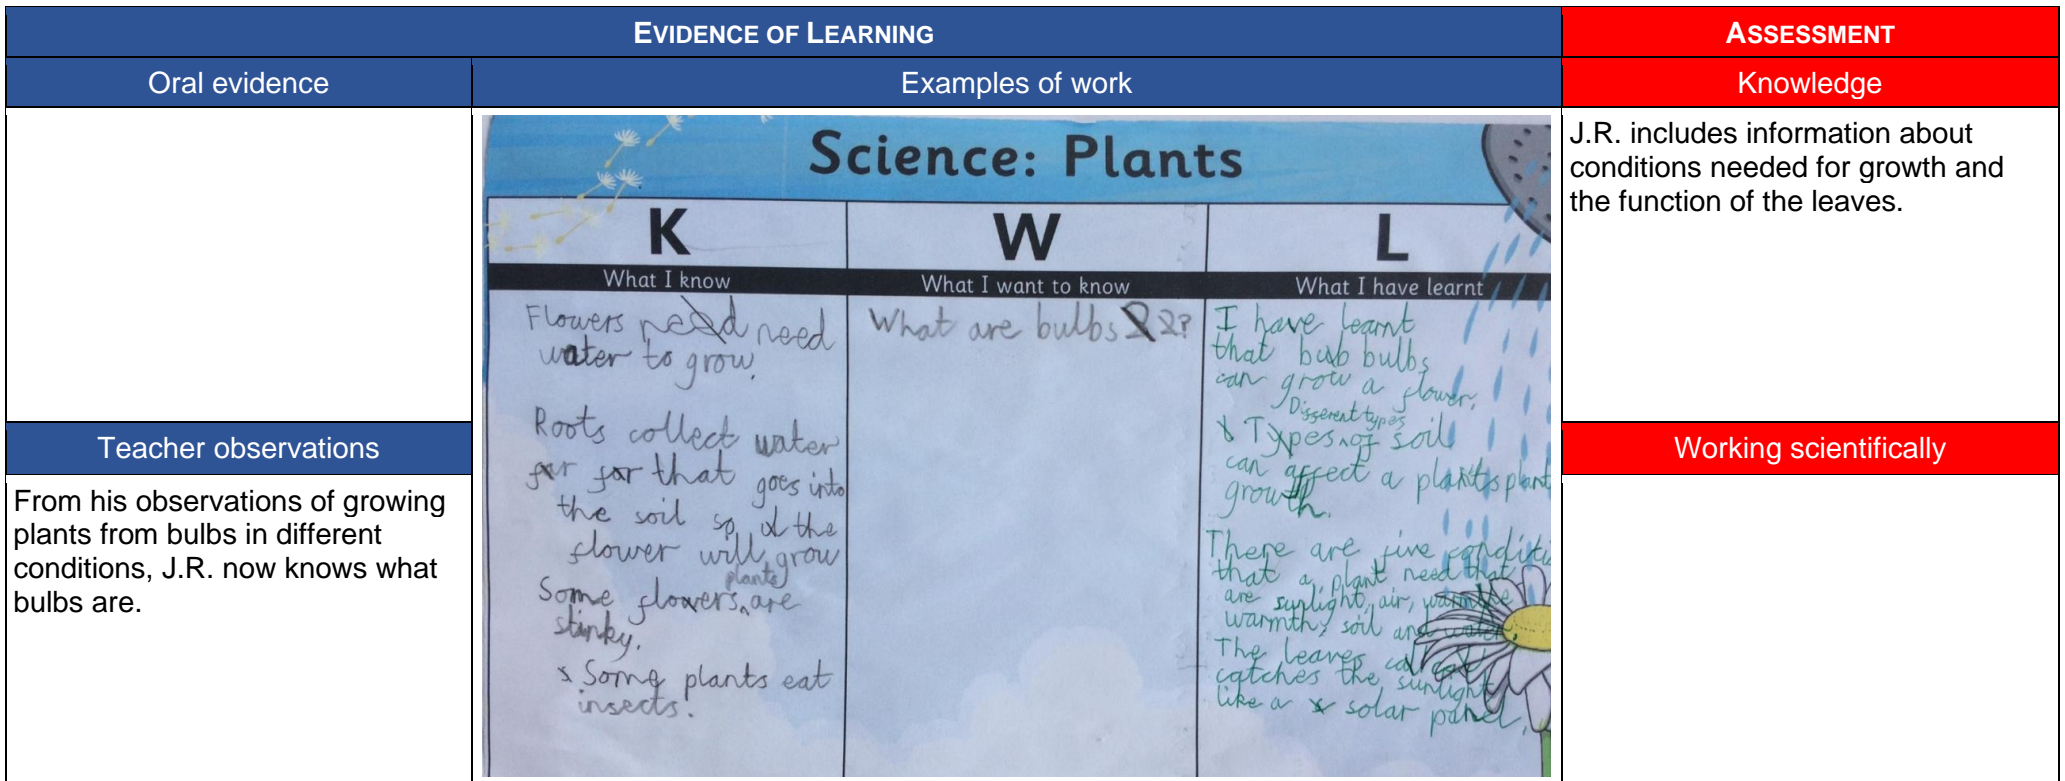 EVIDENCE OF LEARNING
ASSESSMENT
Oral evidence
Examples of work
Knowledge
J.R. includes information about
conditions needed for growth and
the function of the leaves.
Teacher observations
From his observations of growing
plants from bulbs in different
conditions, J.R. now knows what
bulbs are.
Working scientifically
Science: Plants
K
What I know
Flowers need need
water to grow.
Roots collect water
for for that goes into
the soil so the
flower will grow
plants
Some flowers are
stinky.
Some plants eat
insects.
W
What I want to know
What are bulbs ?
L
What I have learnt
I have learnt
that bub bulbs
can grow a flower.
Different types
Types of soil
can affect a plants plant
growth.
There are five conditi
that a plant need that
are sunlight, air, warmthe
warmth, soil and water.
The leaves
catches the sunlight
like a solar panel.